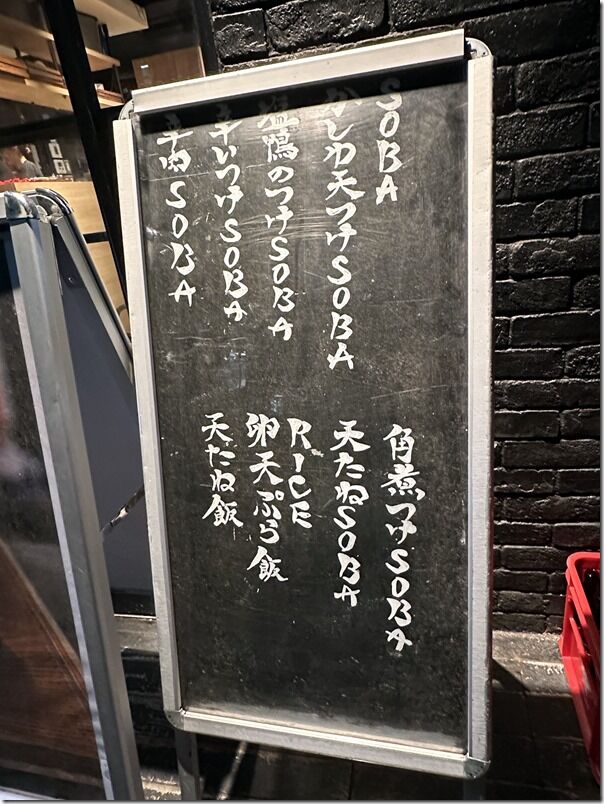 SOBA
かしわ天つけSOBA
塩鴨のつけSOBA
辛いつけSOBA
肉SOBA
角煮つけSOBA
天たねSOBA
RICE
卵天ぷら飯
天たね飯